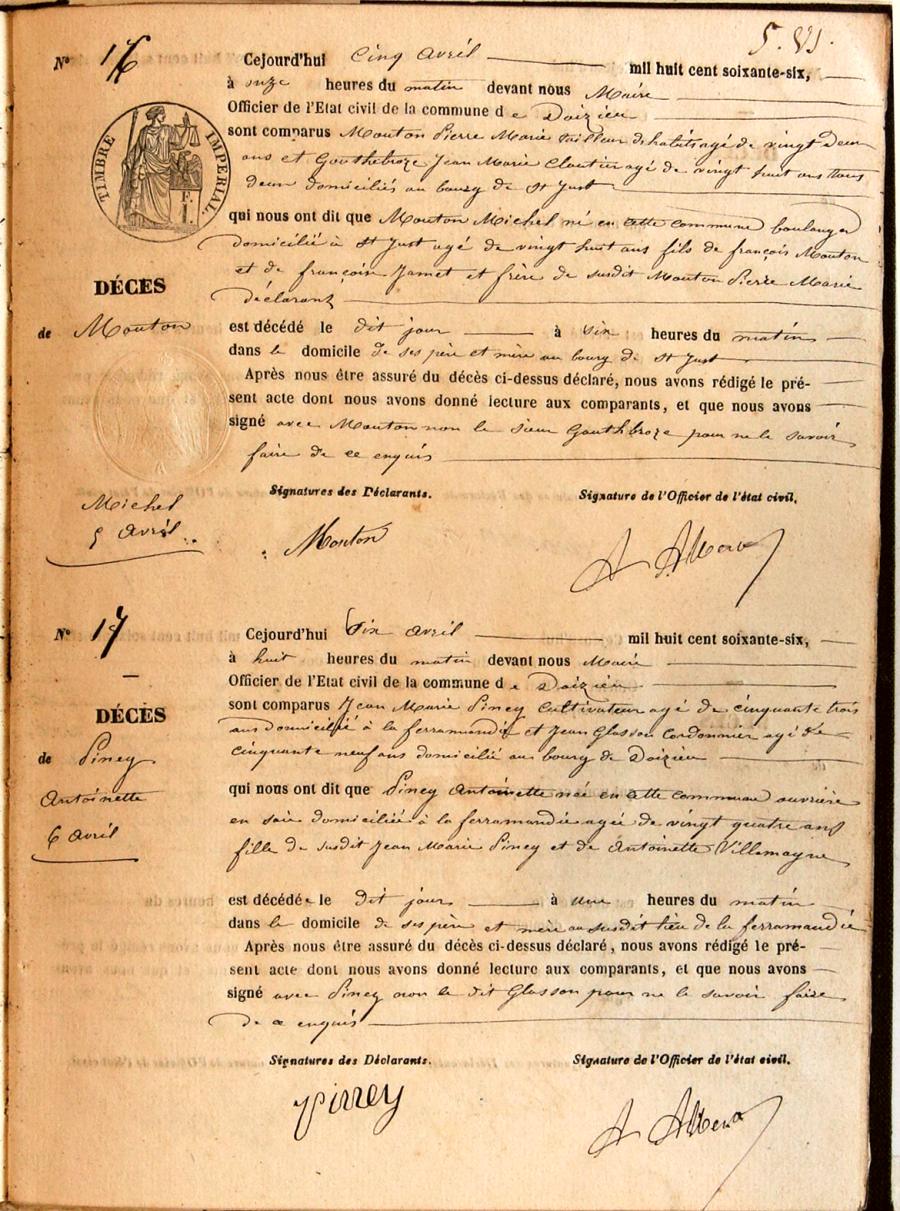 5. VI.
N° 16
Cejourd'hui Cinq Avril mil huit cent soixante-six,
à onze heures du matin devant nous Maire
Officier de l'Etat civil de la commune d e Doizieu
sont comparus Mouton Pierre Marie tailleur d'habits agé de vingt deux
ans et Gouthebroze Jean Marie Cloutier agé de vingt huit ans tous
deux domiciliés au bourg de St Just
qui nous ont dit que Mouton Michel né en cette commune boulanger
domicilié à St Just agé de vingt huit ans fils de françois Mouton
et de françoise Jamet et frère de susdit Mouton Pierre Marie
déclarant
TIMBRE IMPERIAL.
F. I.
DÉCES
de Mouton
Michel
5 Avril
est décédé le dit jour à six heures du matin
dans le domicile de ses père et mère au bourg de St Just
Après nous être assuré du décès ci-dessus déclaré, nous avons rédigé le pré-
sent acte dont nous avons donné lecture aux comparants, et que nous avons
signé avec Mouton non le sieur Gouthbroze pour ne le savoir
faire de ce enquis
Signatures des Déclarants. Signature de l'Officier de l'état civil.
Mouton
N° 17
Cejourd'hui Six avril mil huit cent soixante-six,
à huit heures du matin devant nous Maire
Officier de l'Etat civil de la commune d e Doizieu
sont comparus Jean Marie Piney Cultivateur agé de cinquante trois
ans domicilié à la ferramandie et Jean Glasson Cordonnier agé de
cinquante neuf ans domicilié au bourg de Doizieu
DÉCÈS
de Piney
Antoinette
6 Avril
qui nous ont dit que Piney Antoinette née en cette commune ouvrière
en soie domiciliée à la ferramandie agée de vingt quatre ans
fille de susdit Jean Marie Piney et de Antoinette Villemagne
est décédée le dit jour à une heures du matin
dans le domicile de ses père et mère au susdit lieu de la ferramandie
Après nous être assuré du décès ci-dessus déclaré, nous avons rédigé le pré-
sent acte dont nous avons donné lecture aux comparants, et que nous avons
signé avec Piney non le dit Glasson pour ne le savoir faire
de ce enquis
Signatures des Déclarants. Signature de l'Officier de l'état civil.